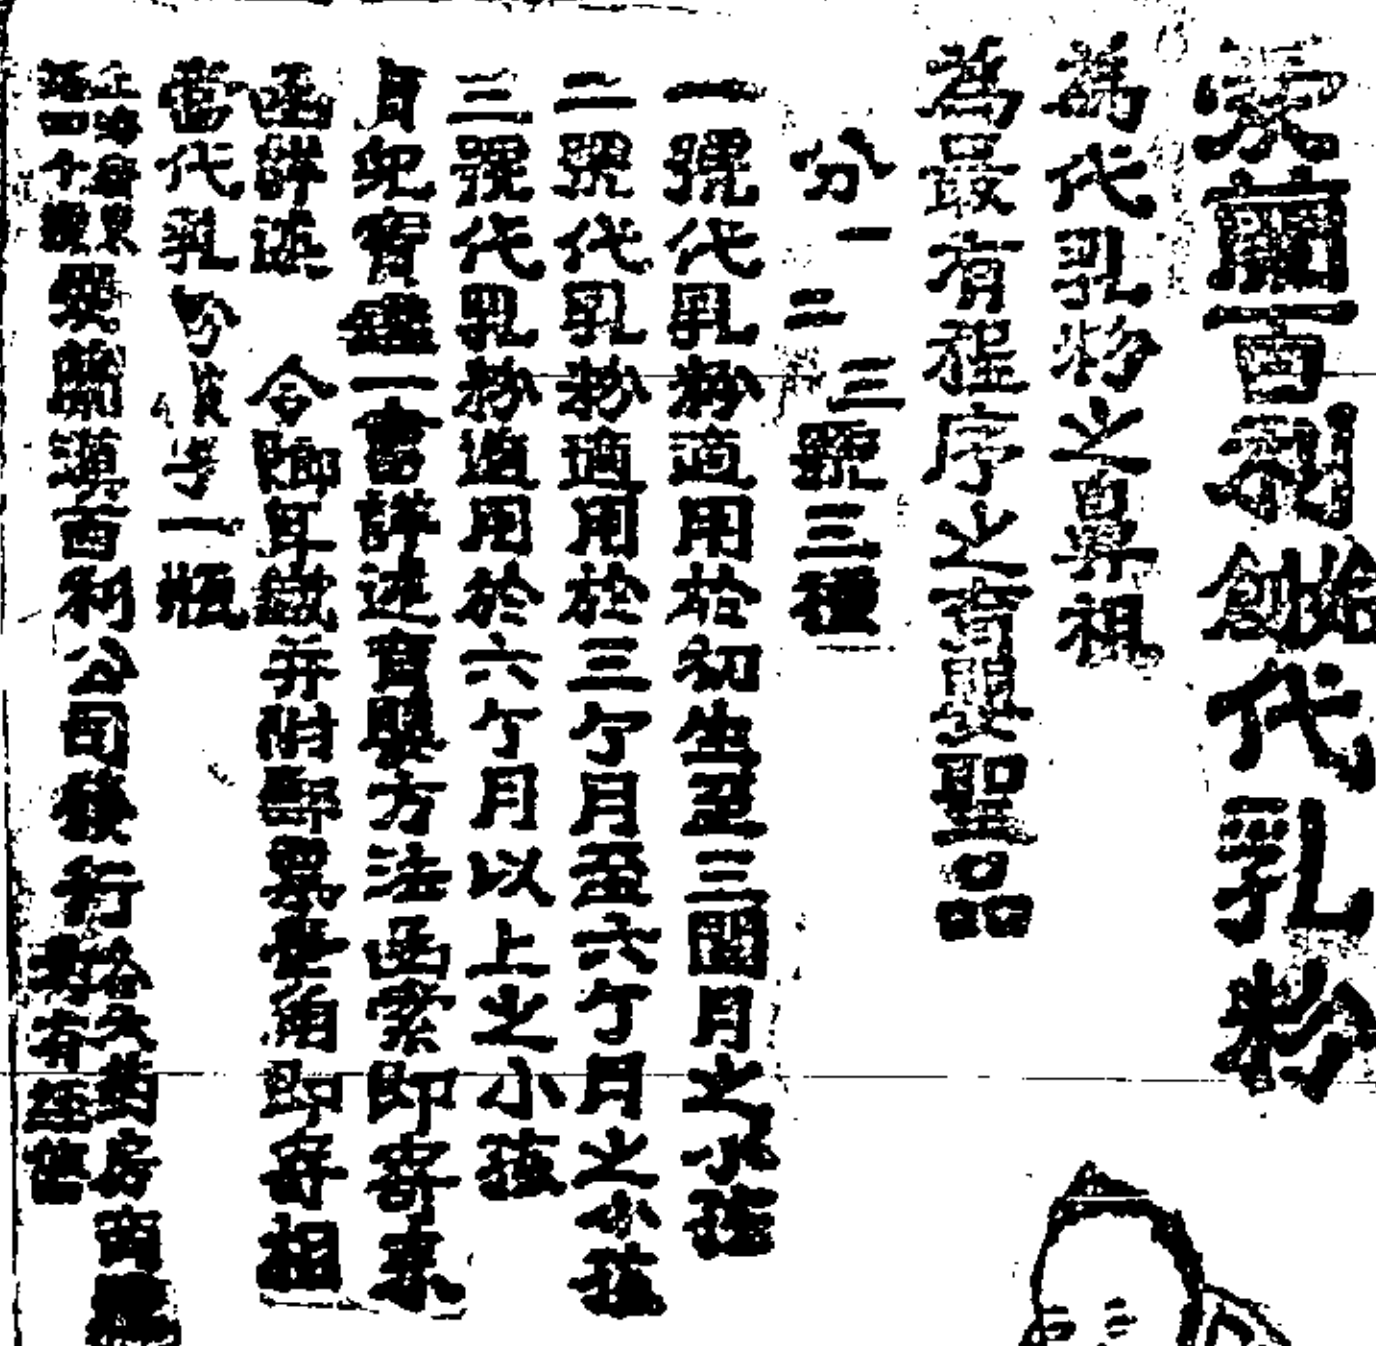 愛蘭百利創始代乳粉
為代乳粉之鼻祖
為最有程序之育嬰聖品
分一二三號三種
一號代乳粉適用於初生至三個月之小孩
二號代乳粉適用於三个月至六个月之小孩
三號代乳粉適用於六个月以上之小孩
貝兒寶鑑一書詳述育嬰方法函索即寄索
函詳述 合即耳鐵并附郵票壹角即寄相
當代乳粉一瓶
愛蘭漢百利公司發行
各大藥房商
均有經售